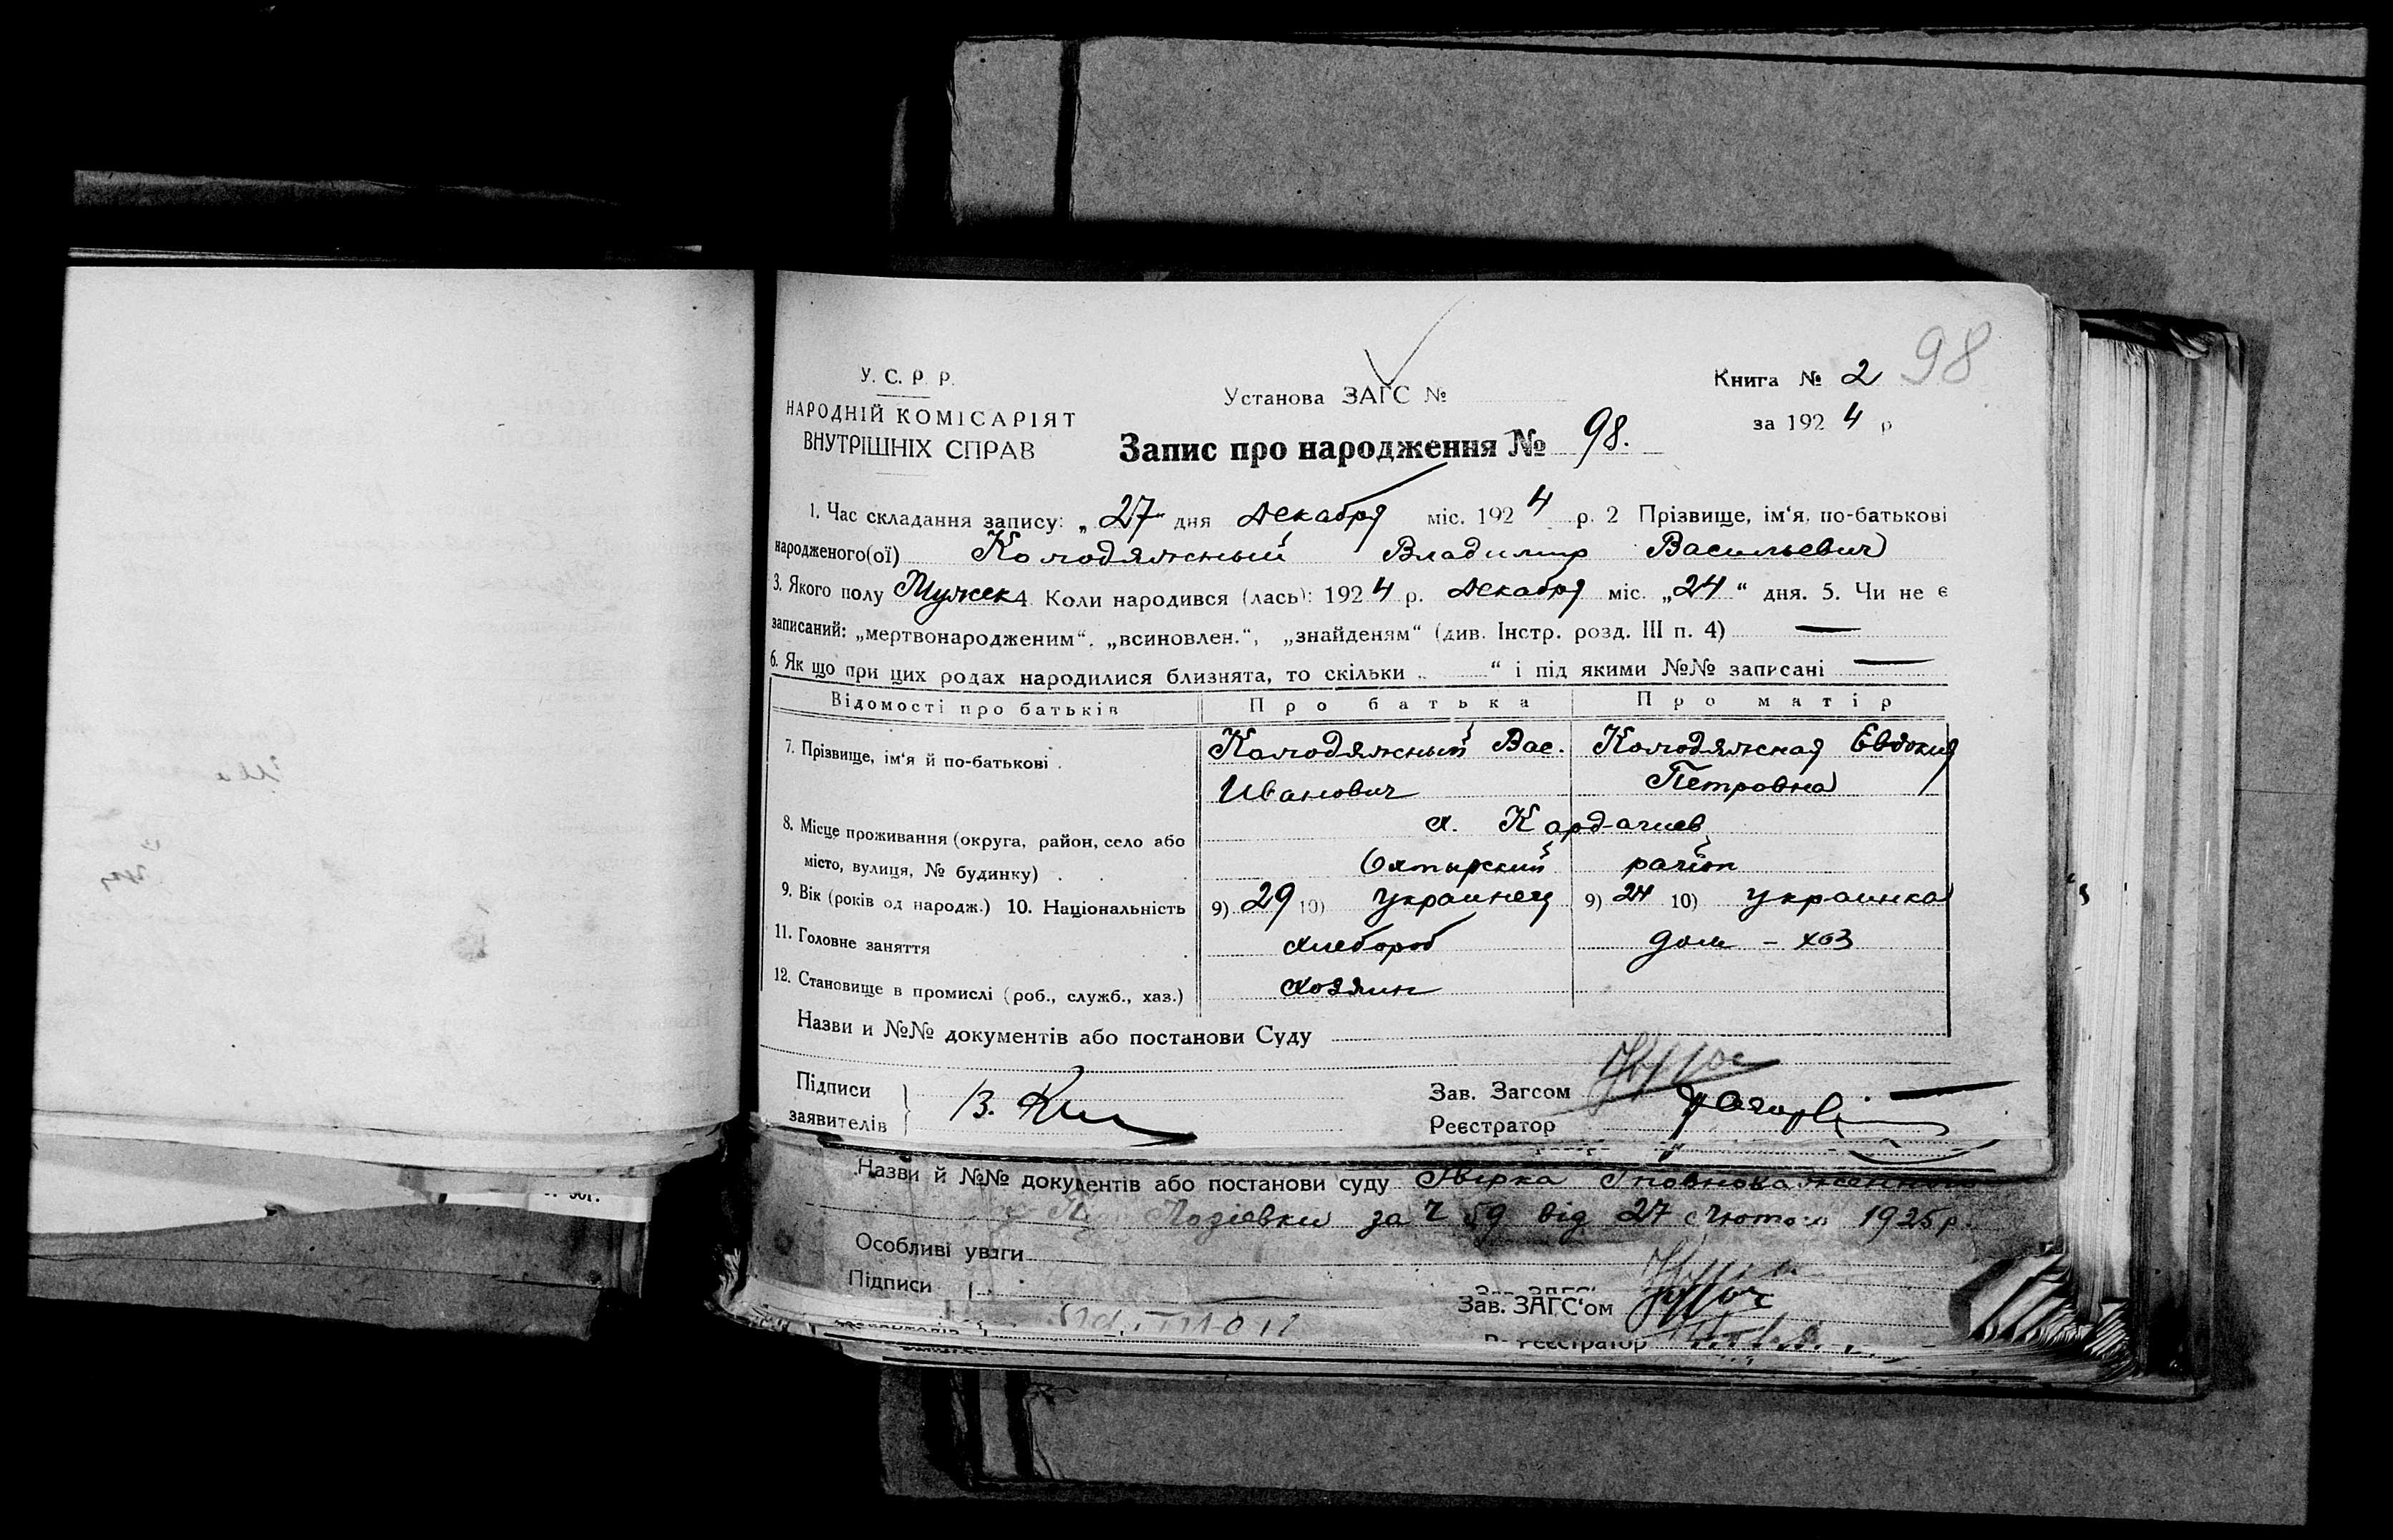 98
У. С. Р. Р.
НАРОДНІЙ КОМІСАРІЯТ
ВНУТРІШНІХ СПРАВ
Установа ЗАГС №
Книга № 2
за 1924 р
Запис про народження № 98.
1. Час складання запису: „27" дня Декабря міс. 1924 р. 2 Прізвище, ім‘я, по-батькові
народженого(ої) Колодяжный Владимир Васильевич
3. Якого полу Мужск 4 Коли народився (лась): 1924 р. Декабря міс. „24“ дня. 5. Чи не є
записаний: „мертвонародженим“, „всиновлен.“, „знайденям“ (див. Інстр. розд. III п. 4) —
6. Як що при цих родах народилися близнята, то скільки „ “ і під якими №№ записані —
Відомості про батьків Про батька Про матір
7. Прізвище, ім‘я й по-батькові . Колодяжный Вас. Колодяжная Евдокия
Иванович Петровна
8. Місце проживання (округа, район, село або х.
місто, вулиця, № будинку) . Охтырский район
9. Вік (років од народж.) 10. Національність 9) 29 10) украинец 9) 24 10) украинка
11. Головне заняття хлебороб дом - хоз
12. Становище в промислі (роб., служб., хаз.) хозяин
Назви и №№ документів або постанови Суду
Підписи
заявителів
Зав. Загсом
Реєстратор
Назви й №№ документів або постанови суду
за Ч 59 від 27 Лютого 1925 р.
Особливі уваги
Підписи
Зав. ЗАГС‘ом
Реєстратор